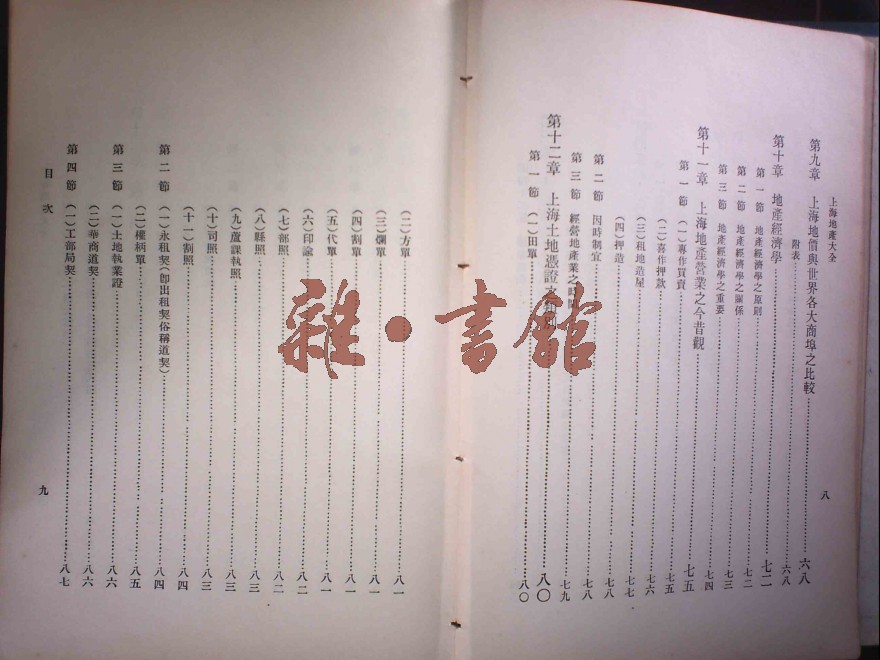 上海地產大全
第九章 上海地價與世界各大商埠之比較………六八
附表………六八
第十章 地產經濟學………七二
第一節 地產經濟學之原則………七二
第二節 地產經濟學之關係………七三
第三節 地產經濟學之重要………七四
第十一章 上海地產營業之今昔觀………七五
第一節 (一)專作買賣………七五
(二)喜作押款………七六
(三)租地造屋………七七
(四)押造………七八
第二節 因時制宜………七八
第三節 經營地產業之………七九
第十二章 上海土地憑證之………八〇
第一節 (一)田單………八〇
八
(二)方單………八一
(三)爛單………八一
(四)割單………八一
(五)代單………八一
(六)印諭………八二
(七)部照………八二
(八)縣照………八三
(九)蘆課執照………八三
(十)司照………八三
(十一)割照………八四
第二節 (一)永租契(卽出租契俗稱道契)………八四
(二)權柄單………八五
第三節 (一)土地執業證………八六
(二)華商道契………八六
第四節 (一)工部局契………八七
目次
九
雜·書館